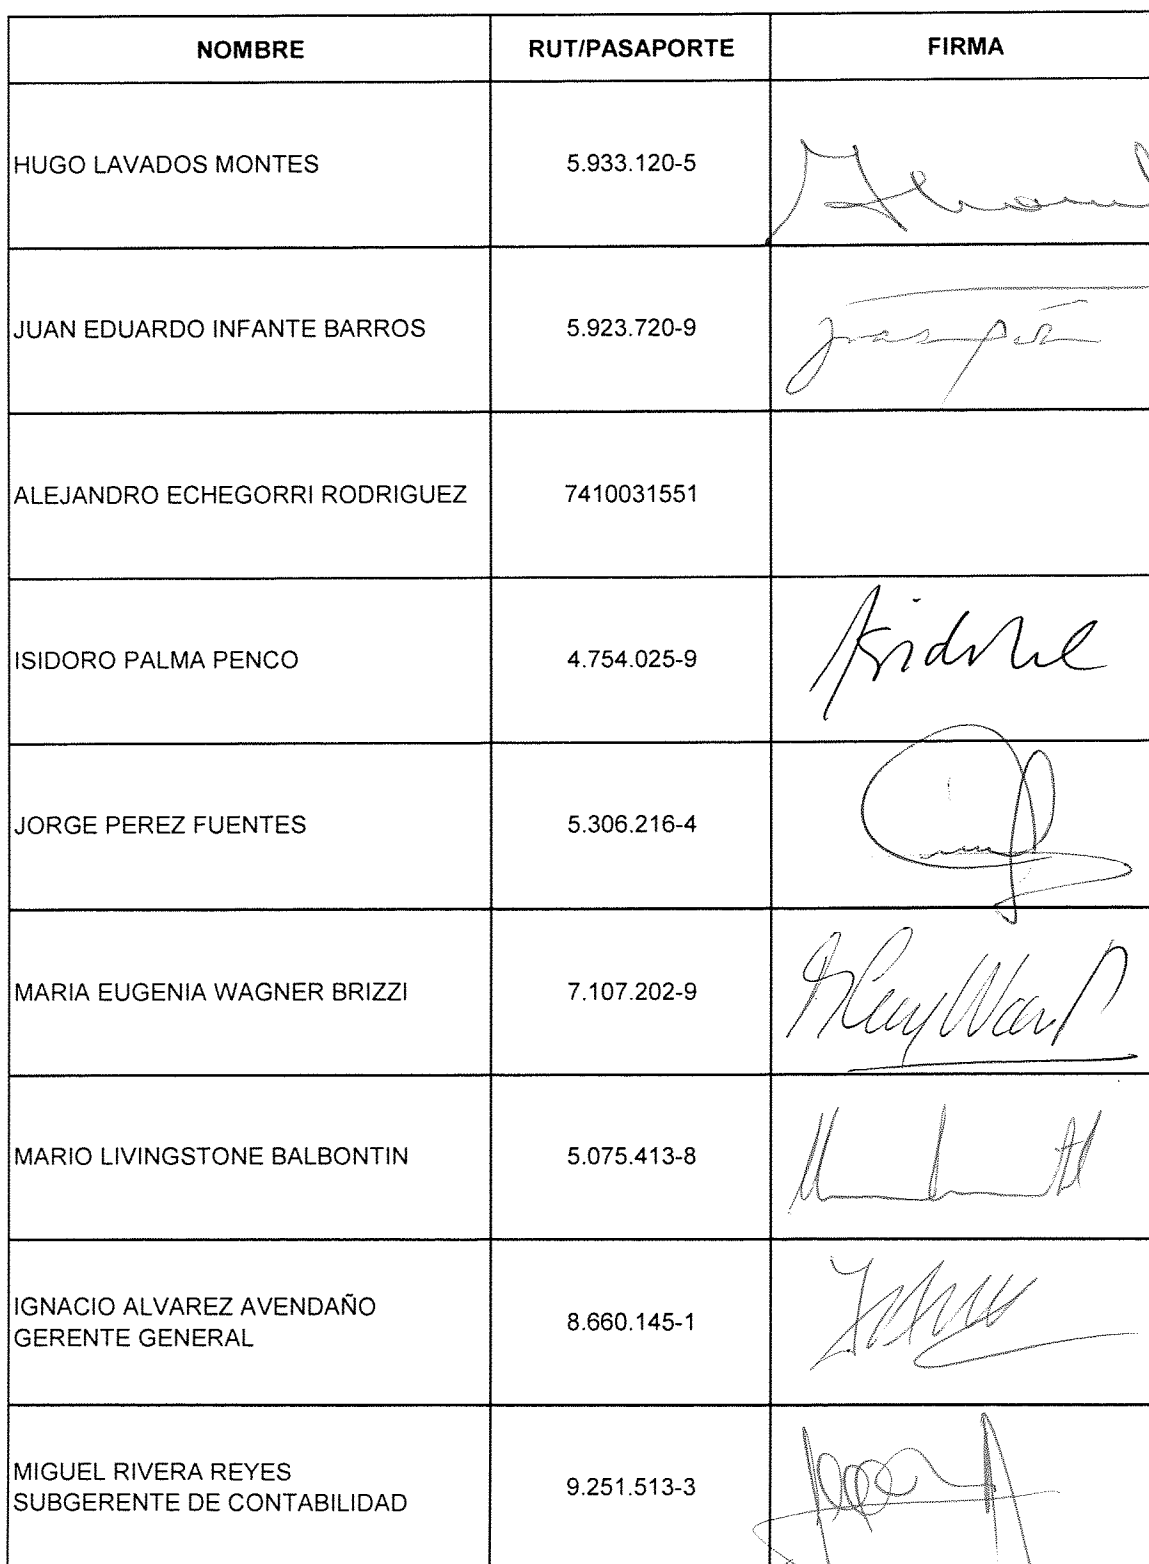 NOMBRE RUT/PASAPORTE FIRMA
HUGO LAVADOS MONTES 5.933.120-5
JUAN EDUARDO INFANTE BARROS 5.923.720-9
ALEJANDRO ECHEGORRI RODRIGUEZ 7410031551
ISIDORO PALMA PENCO 4.754.025-9
JORGE PEREZ FUENTES 5.306.216-4
MARIA EUGENIA WAGNER BRIZZI 7.107.202-9
MARIO LIVINGSTONE BALBONTIN 5.075.413-8
IGNACIO ALVAREZ AVENDAÑO
GERENTE GENERAL 8.660.145-1
MIGUEL RIVERA REYES
SUBGERENTE DE CONTABILIDAD 9.251.513-3